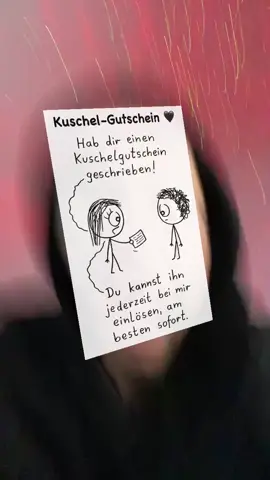 Kuschel-Gutschein 🖤
Hab dir einen
Kuschelgutschein
geschrieben!
Du kannst ihn
jederzeit bei mir
einlösen, am
besten sofort.